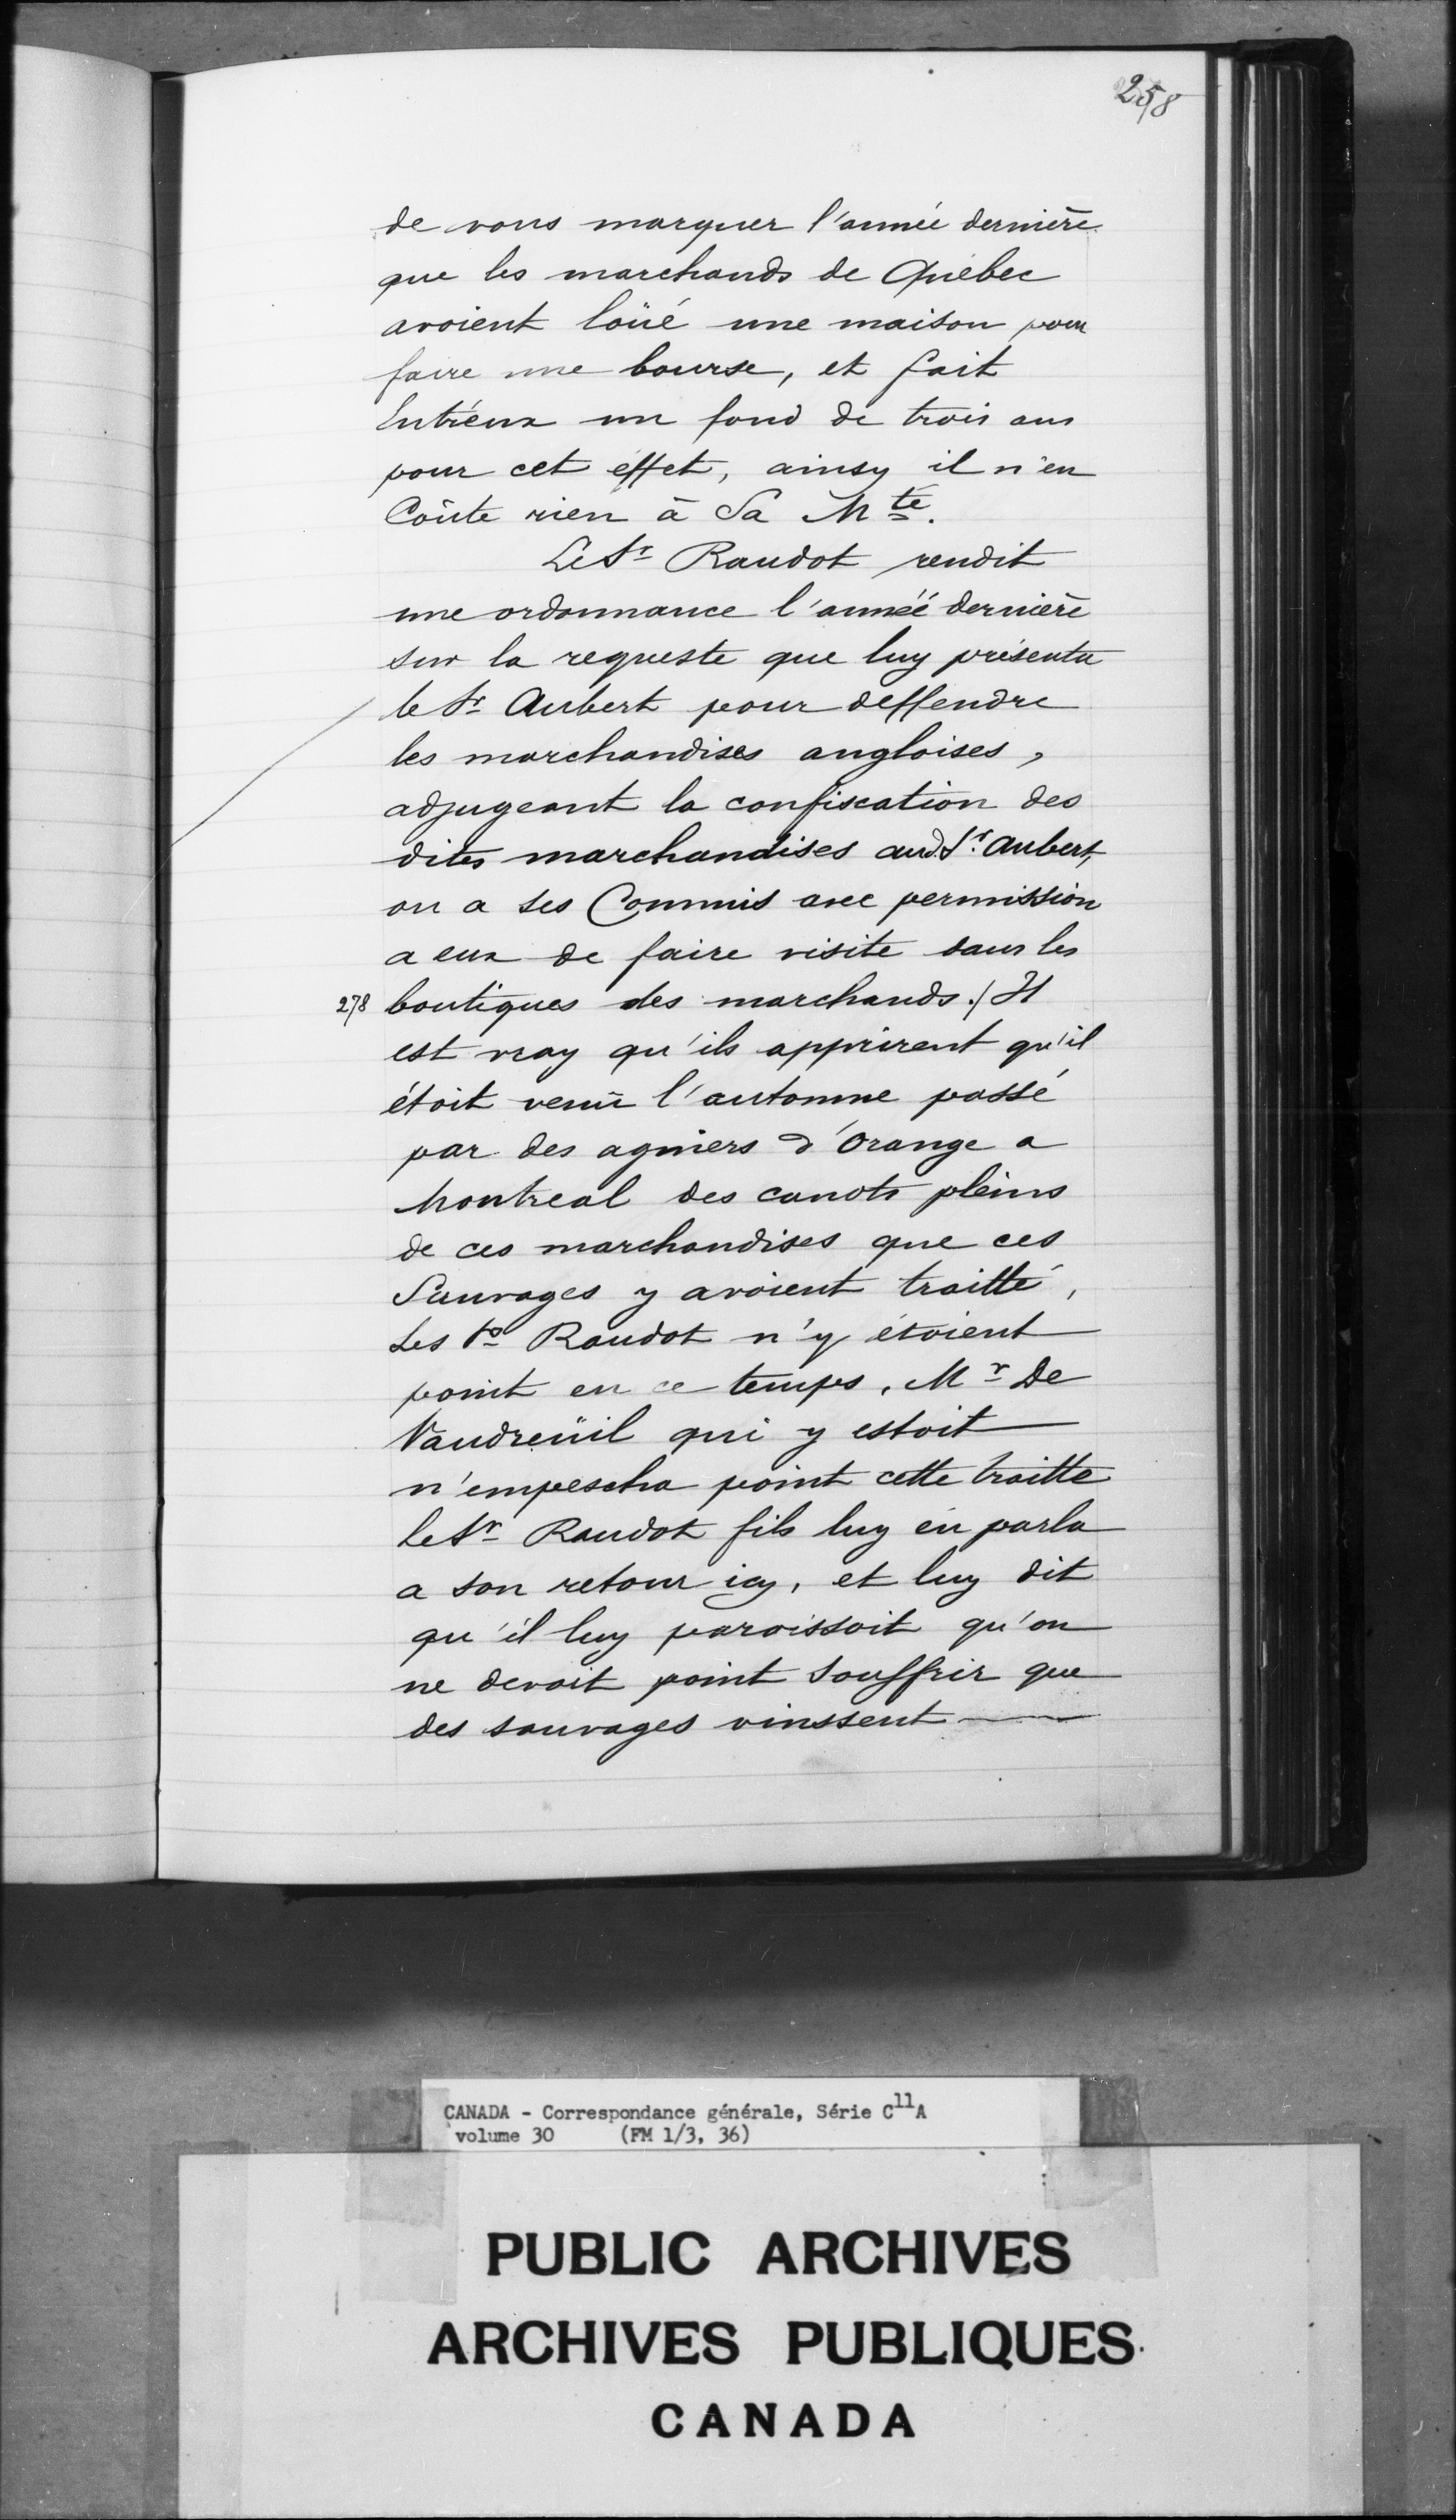 258
de vous marquer l'année dernière
que les marchands de Québec
avoient loüé une maison pour
faire une bourse, et fait
Entréux un fond de trois ans
pour cet éffet, ainsy il n'en
Coûte rien à Sa Mté.
Le Sr Raudot rendit
une ordonnance l'année dernière
sur la requeste que luy présenta
le Sr Aubert pour deffendre
les marchandises angloises,
adjugeant la confiscation des
dites marchandises aud. Sr. Aubert,
ou a ses Commis avec permission
a eux de faire visite dans les
278 boutiques des marchands./ Il
est vray qu'ils apprirent qu'il
étoit venu l'automne passé
par des agniers d'Orange a
Montreal des canots pleins
de ces marchandises que ces
Sauvages y avoient traitté,
Les Srs Raudot n'y étoient
point en ce temps, Mr De
Vaudreüil qui y estoit
n'empescha point cette traitte
le Sr Raudot fils luy en parla
a son retour icy, et luy dit
qu'il luy paroissoit qu'on
ne devoit point souffrir que
des sauvages vinssent
CANADA - Correspondance générale, Série C11A
volume 30 (FM 1/3, 36)
PUBLIC ARCHIVES
ARCHIVES PUBLIQUES
CANADA